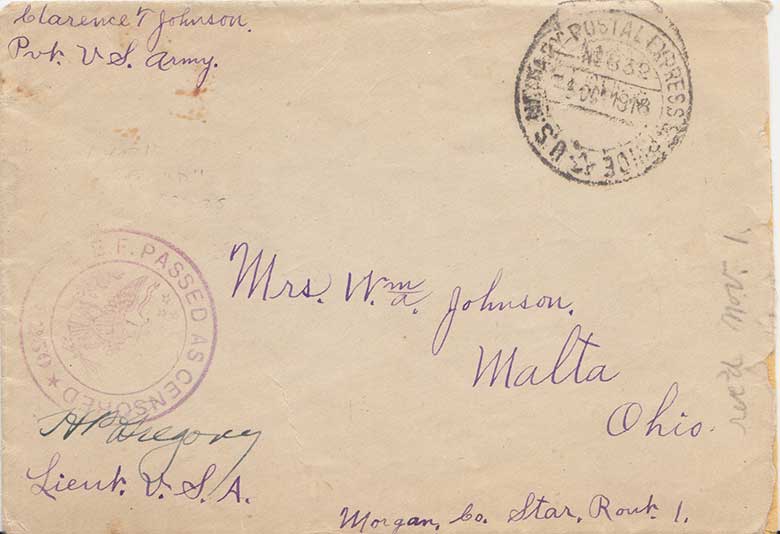 Clarence T Johnson.
Pvt. U S. Army.
U.S. MILITARY POSTAL EXPRESS SERVICE
No 832
OCT 1918
E. F. PASSED AS CENSORED
Mrs. Wm A. Johnson.
Malta
Ohio.
rec'd Nov. 1,
H P Gregory
Lieut. U. S. A.
Morgan, Co. Star, Rout 1.